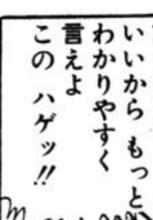 いいから もっと
わかりやすく
言えよ
この ハゲッ!!